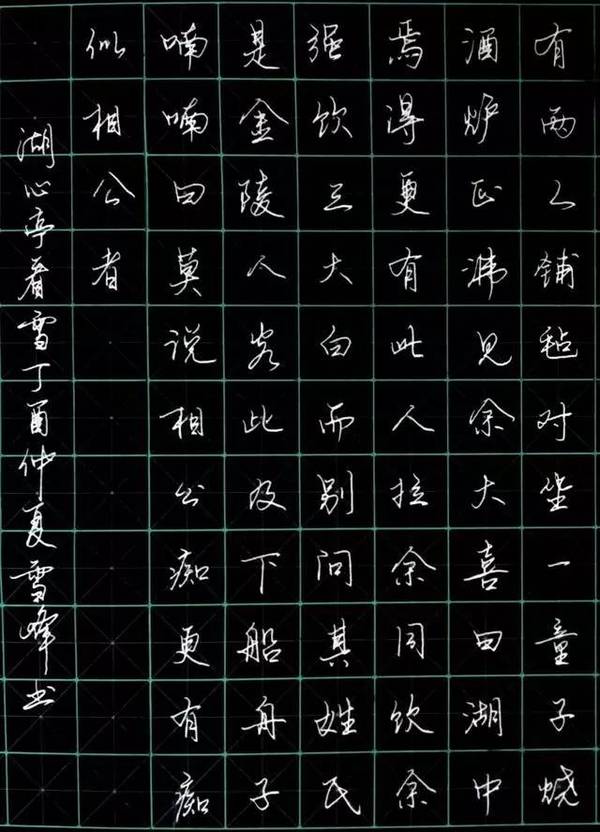 有两人铺毡对坐一童子烧
酒炉正沸见余大喜曰湖中
焉得更有此人拉余同饮余
强饮三大白而别问其姓氏
是金陵人客此及下船舟子
喃喃曰莫说相公痴更有痴
似相公者
湖心亭看雪丁酉仲夏雪峰书